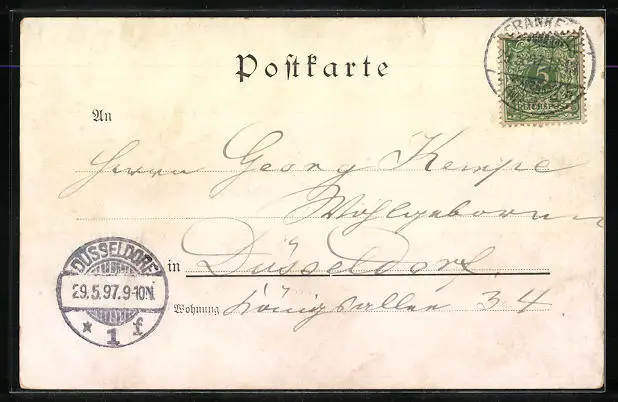 Postkarte
An
Herrn Georg Kempe
Wohlgeboren
in Düsseldorf
Wohnung Königsallee 34
DÜSSELDORF
29.5.97.9-10N.
* 1 f
5
REICHSPOST